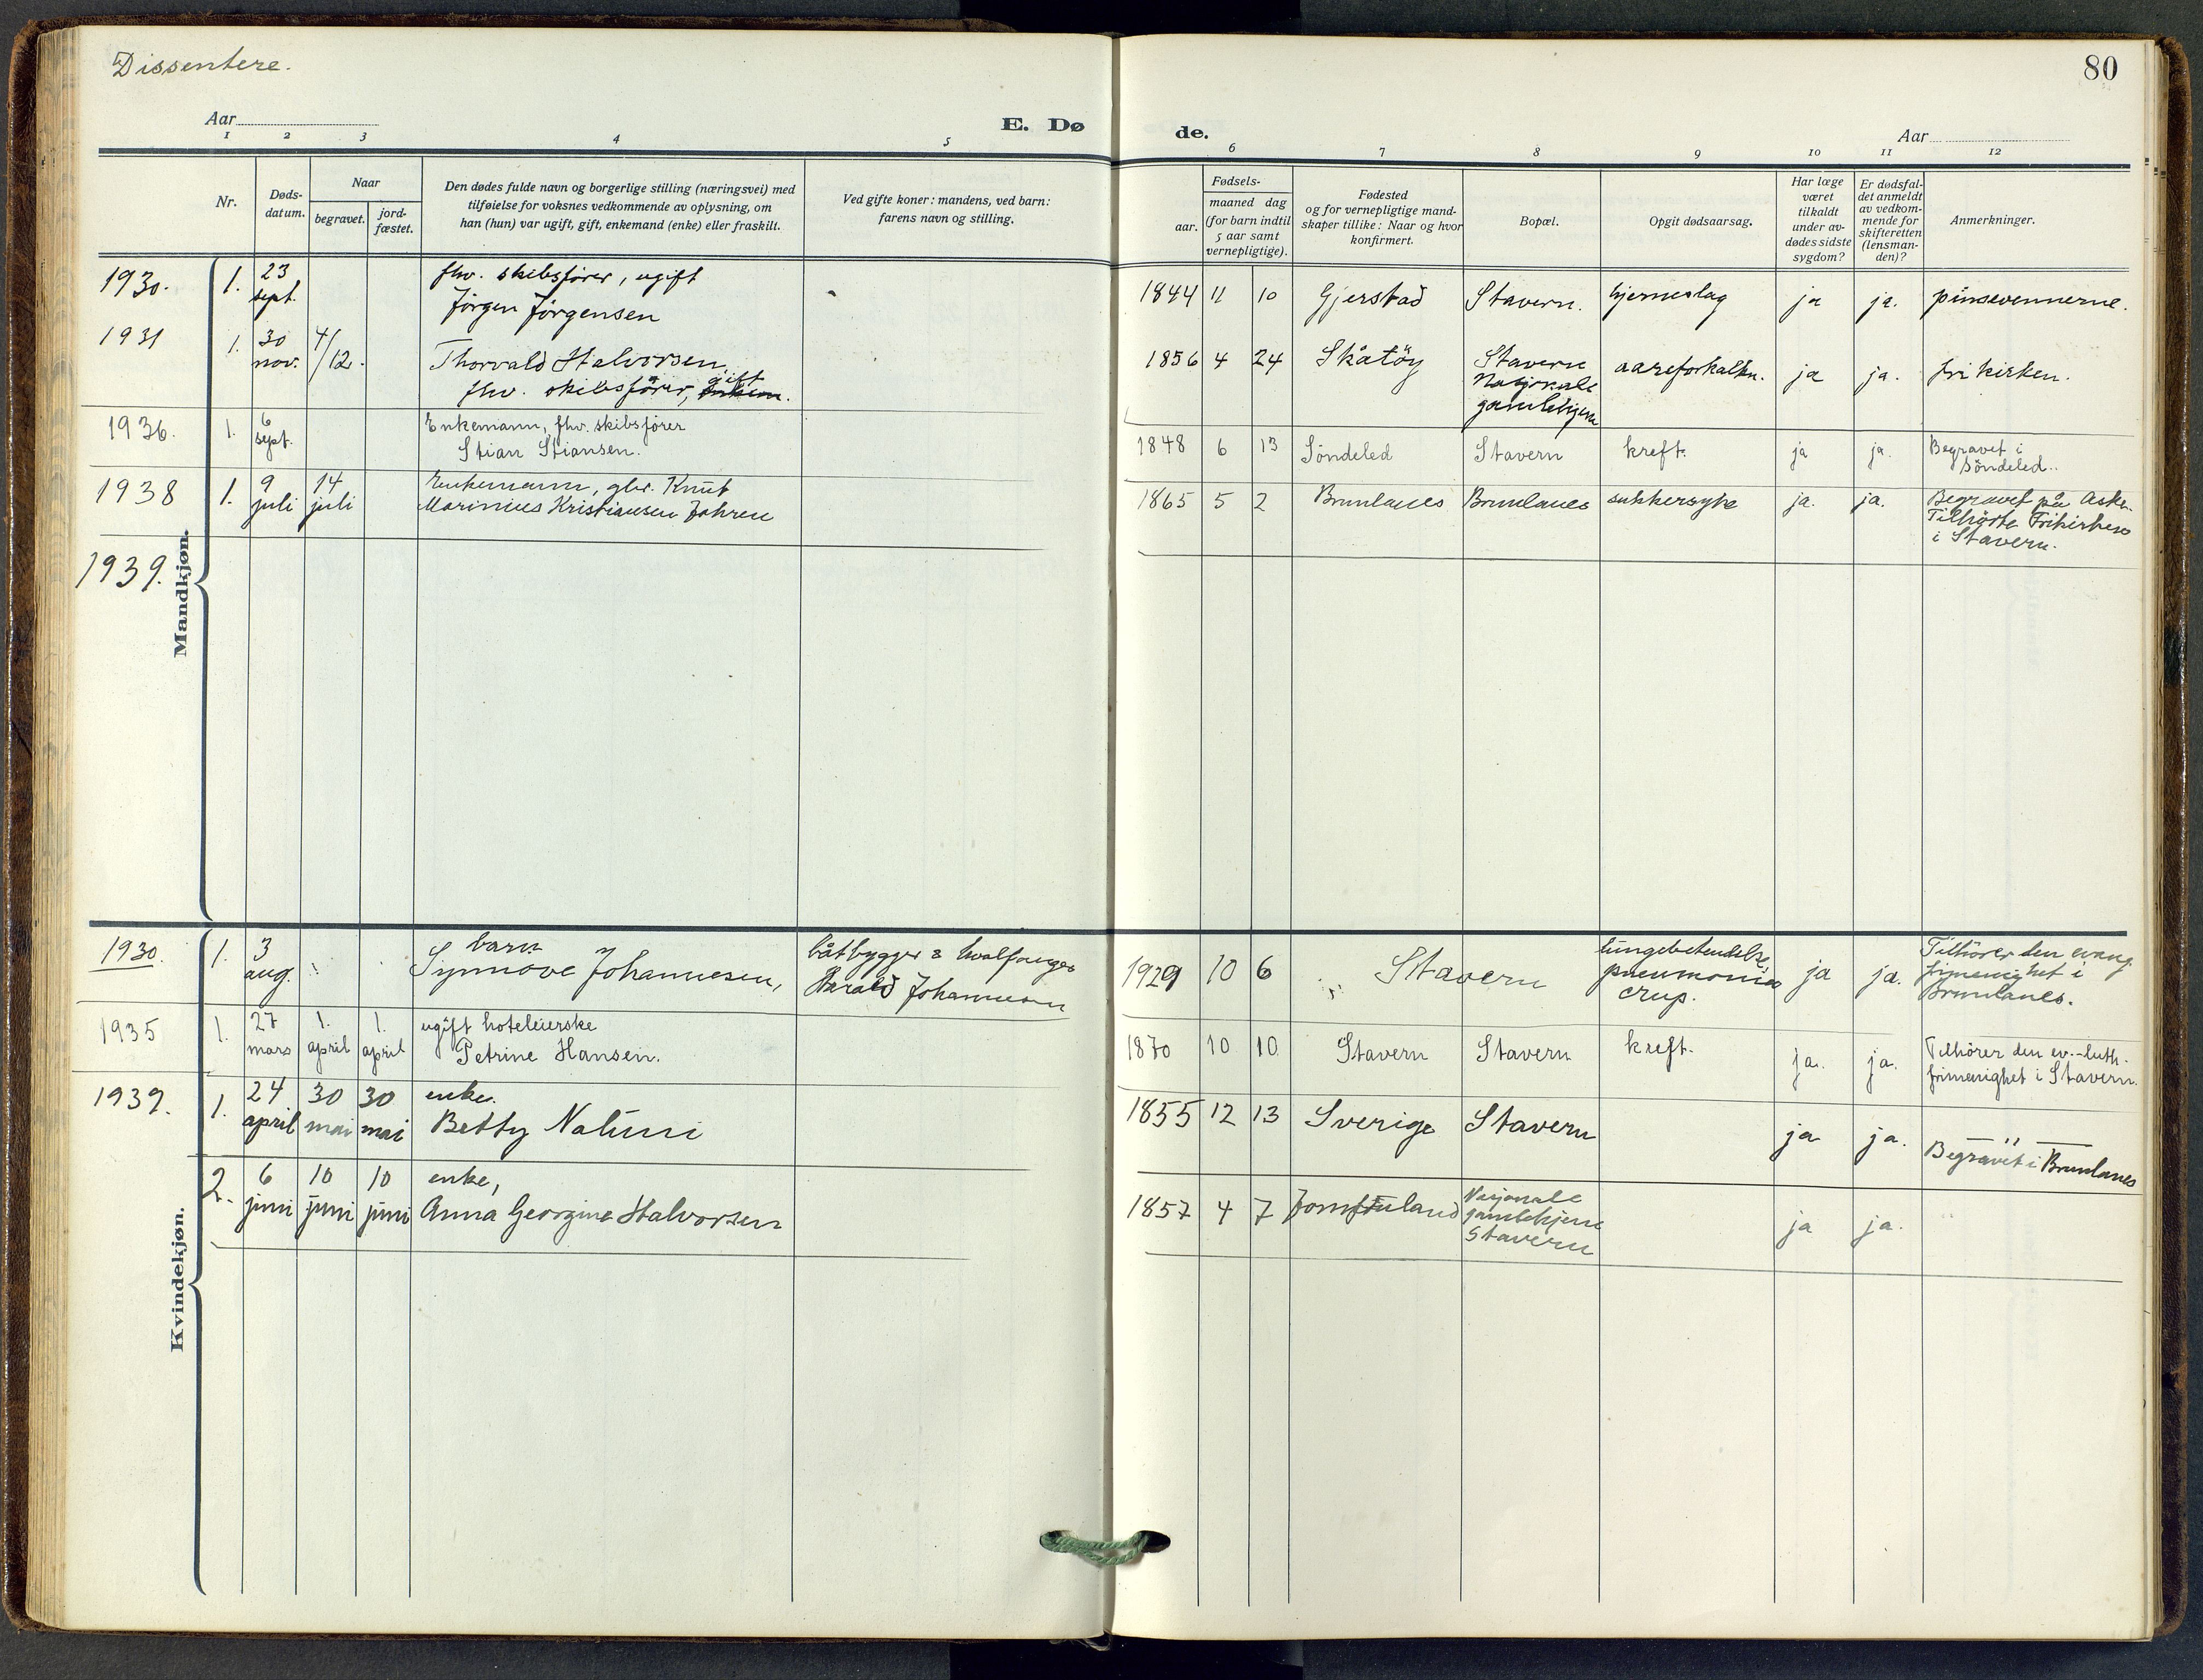 Dissentere.
80
Aar
E. Dø
de.
Aar
1 2 3 4 5 6 7 8 9 10 11 12
Nr.
Døds-
datum.
Naar
begravet.
jord-
fæstet.
Den dødes fulde navn og borgerlige stilling (næringsvei) med
tilføielse for voksnes vedkommende av oplysning, om
han (hun) var ugift, gift, enkemand (enke) eller fraskilt.
Ved gifte koner: mandens, ved barn:
farens navn og stilling.
Fødsels-
aar.
maaned dag
(for barn indtil
5 aar samt
vernepligtige).
Fødested
og for vernepligtige mand-
skaper tillike: Naar og hvor
konfirmert.
Bopæl.
Opgit dødsaarsag.
Har læge
været
tilkaldt
under av-
dødes sidste
sygdom?
Er dødsfal-
det anmeldt
av vedkom-
mende for
skifteretten
(lensman-
den)?
Anmerkninger.
Mandkjøn.
1930. 1. 23 sept.
fhv. skibsfører, ugift
Jörgen Jörgensen
1844 11 10 Gjerstad Stavern. hjerneslag ja ja. pinsevennerne.
1931 1. 30 nov. 4/12.
Thorvald Halvorsen
fhv. skibsfører, gift
1856 4 24 Skåtöy
Stavern
Nasjonale
gamlehjem
aareforkalkn. ja ja. frikirken.
1936. 1. 6 sept.
Enkemann, fhv. skibsfører
Stian Stiansen.
1848 6 13 Söndeled Stavern kreft. ja ja.
Begravet i
Söndeled.
1938 1. 9 juli 14 juli
Enkemann, gbr. Knut
Marinius Kristiansen Jahren
1865 5 2 Brunlanes Brunlanes sukkersyke ja. ja.
Begravet på
Tilhörte Frikirken
i Stavern.
1939.
Kvindekjøn.
1930. 1. 3 aug.
barn
Synnöve Johannesen,
båtbygger & hvalfanger
Harald Johannesen
1929 10 6 Stavern
lungebetendelse,
pneumonia
crup.
ja ja.
Tilhörer den evang.
frimenighet i
Brunlanes.
1935 1. 27 mars 1. april 1. april
ugift hoteleierske
Petrine Hansen.
1870 10 10 Stavern Stavern kreft. ja. ja.
Tilhörer den ev.-luth.
frimenighet i Stavern.
1939. 1. 24 april 30 mai 30 mai
enke.
Betty
1855 12 13 Sverige Stavern ja ja.
— " —
Begravet i Brunlanes
2. 6 juni 10 juni 10 juni
enke,
Anna Georgine Halvorsen
1857 4 7 Jomfruland
Nasjonale
gamlehjem
Stavern
ja ja.